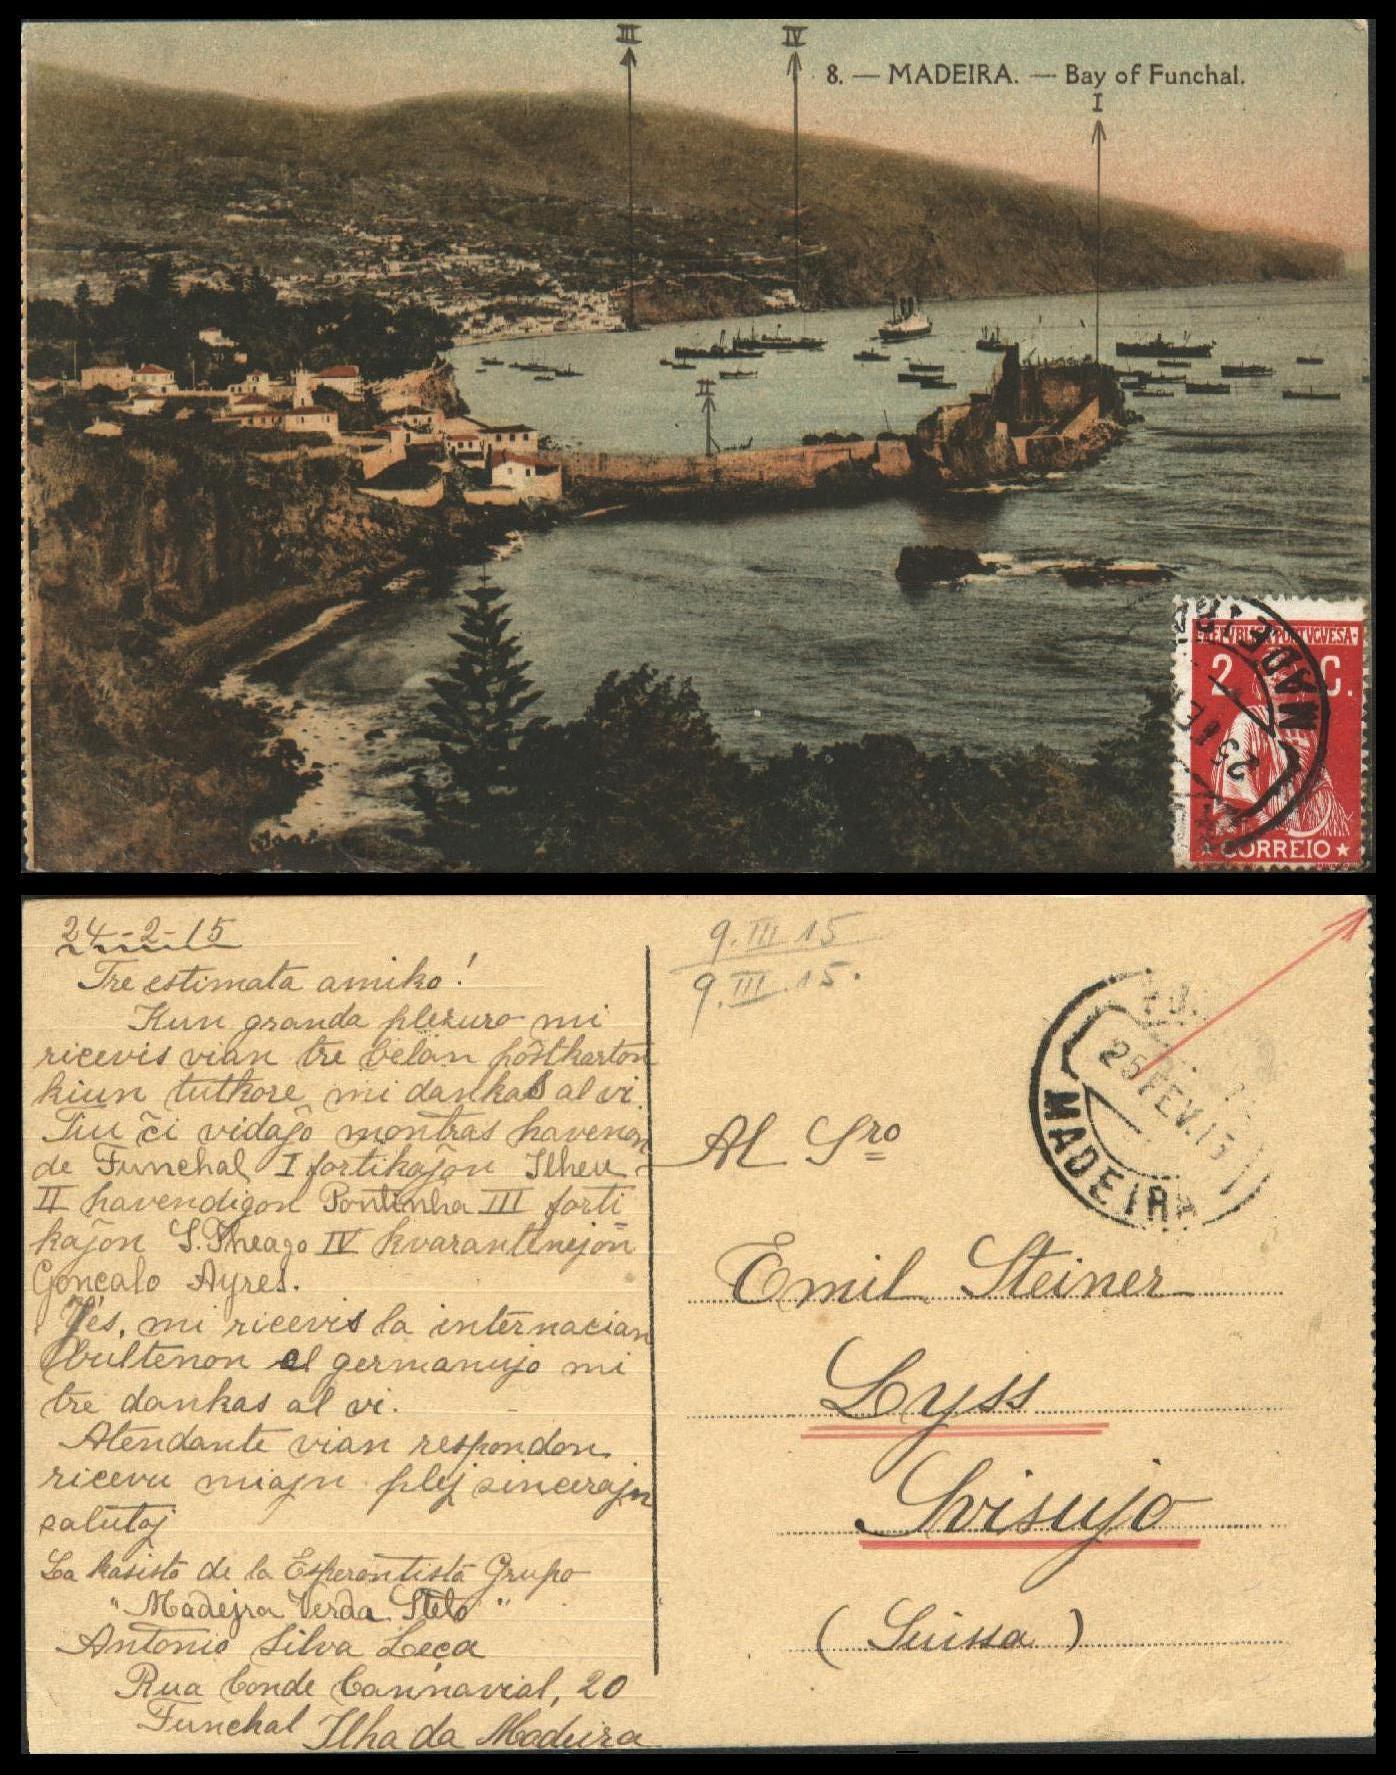 III
IV
8. — MADEIRA. — Bay of Funchal.
I
II
REPUBLICA PORTVGVESA
2 C.
MADEIRA
CORREIO
24-2-15
Tre estimata amiko!
Kun granda plezuro mi
ricevis vian tre belan pos̃tkarton
kiun tutkore mi dankas al vi
Tiu c̃i vidajo montras havenon
de Funchal I fortikaj̃on Ilheu
II havendigon Pontinha III forti
kaj̃on S. Theago IV kvarantenejon
Goncalo Ayres.
Jes, mi ricevis la internacian
bultenon el germanujo mi
tre dankas al vi.
Atendante vian respondon
ricevu miajn plej sincerajn
salutoj
La kasisto de la Esperantista Grupo
"Madejra Verda Stelo"
Antonio Silva Leça
Rua Conde Cannavial, 20
Funchal Ilha da Madeira
9. III 15
9. III. 15.
25 FEV. 15
MADEIRA
Al Sro
Emil Steiner
Lyss
Svisujo
(Suissa)